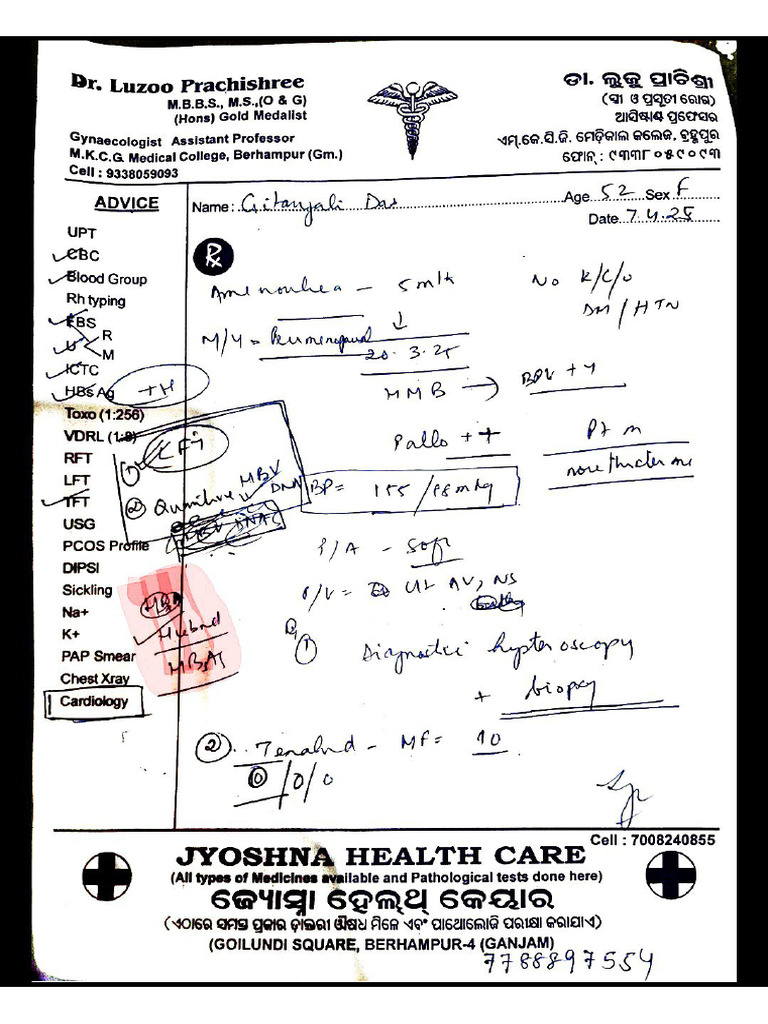 Dr. Luzoo Prachishree
M.B.B.S., M.S.,(O & G)
(Hons) Gold Medalist
Gynaecologist Assistant Professor
M.K.C.G. Medical College, Berhampur (Gm.)
Cell : 9338059093
ଡା. ଲୁଜୁ ପ୍ରାଚିଶ୍ରୀ
(ସ୍ତ୍ରୀ ଓ ପ୍ରସୂତୀ ରୋଗ)
ଆସିଷ୍ଟାଣ୍ଟ ପ୍ରଫେସର
ଏମ୍.କେ.ସି.ଜି. ମେଡ଼ିକାଲ କଲେଜ, ବ୍ରହ୍ମପୁର
ଫୋନ୍ : ୯୩୩୮୦୫୯୦୯୩
Name: Gitanjali Das Age 52 Sex F
Date 7.4.25
ADVICE
UPT
CBC
Blood Group
Rh typing
FBS
U R
M
ICTC
HBs Ag +H
Toxo (1:256)
VDRL (1:8)
RFT
LFT
TFT
USG
PCOS Profile
DIPSI
Sickling
Na+
K+
PAP Smear
Chest Xray
Cardiology
①
② HBV
DNA
Husband
HBsAg
Rx
Amenorrhea - 5 mth No K/C/O
DM / HTN
M/H =
20.3.25
HMB →
Pallo ++
BP = 155/98 mmHg
P/A - Soft
P/V = Ut AV, NS
① Diagnostic hysteroscopy
+ biopsy
② MF = 10
0/0/0
Cell : 7008240855
JYOSHNA HEALTH CARE
(All types of Medicines available and Pathological tests done here)
ଜ୍ୟୋସ୍ନା ହେଲ୍‌ଥ୍ କେୟାର
(ଏଠାରେ ସମସ୍ତ ପ୍ରକାର ଡାକ୍ତରୀ ଔଷଧ ମିଳେ ଏବଂ ପାଥୋଲୋଜି ପରୀକ୍ଷା କରାଯାଏ)
(GOILUNDI SQUARE, BERHAMPUR-4 (GANJAM)
7788897554